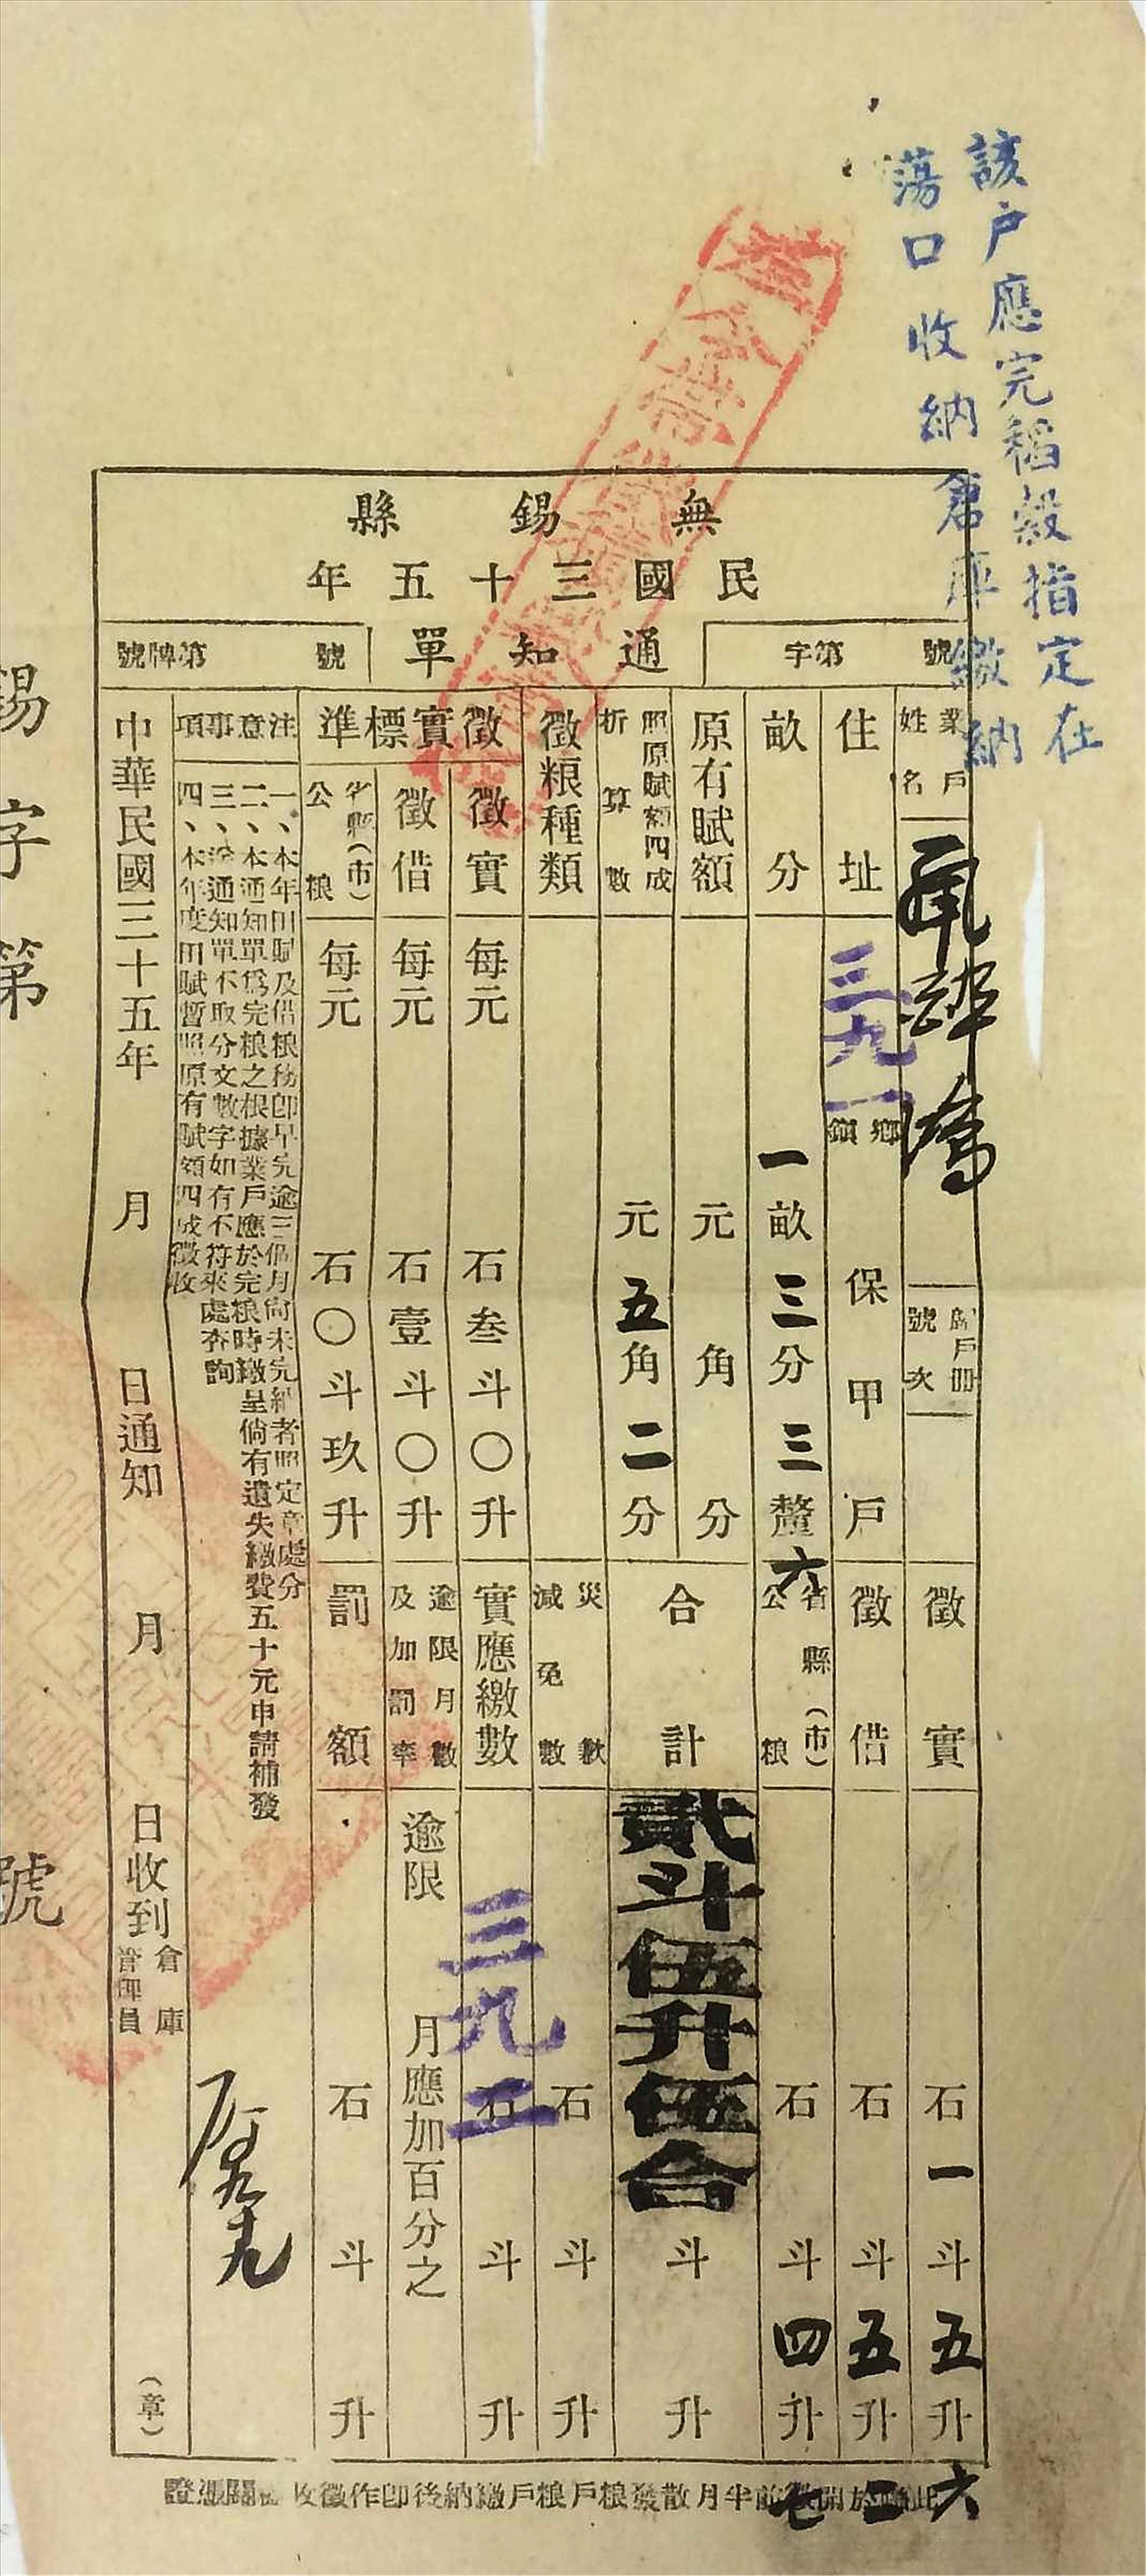 該戶應完稻穀指定在
蕩口收納倉庫繳納
無錫縣
民國三十五年
通知單
字第 號
第牌號 號
業戶姓名
歸戶冊號次
住址
三九一
鄉鎮 保 甲 戶
畝分
一畝三分三釐六
原有賦額
元 角 分
照原賦額四成折算數
元五角二分
徵粮種類
徵實標準
徵實 每元 石叁斗〇升
徵借 每元 石壹斗〇升
省縣(市)公粮 每元 石〇斗玖升
徵實 石一斗五升六
徵借 石斗五升二
省縣(市)公粮 石斗四升七
合計 貳斗伍升伍合
斗 升
災歉減免數 石 斗 升
實應繳數 石 斗 升
三九二
逾限月數及加罰率 逾限 月應加百分之
罰額 石 斗 升
注意事項
一、本年田賦及借粮務即早完逾三個月尚未完納者照定章處分
二、本通知單爲完粮之根據業戶應於完粮時繳呈倘有遺失繳費五十元申請補發
三、本通知單不取分文數字如有不符來處查詢
四、本年度田賦暫照原有賦額四成徵收
中華民國三十五年 月 日通知 月 日收到
倉庫管理員
(章)
錫字第 號
此聯於開徵前半月散發粮戶粮戶繳納後即作徵收機關憑證